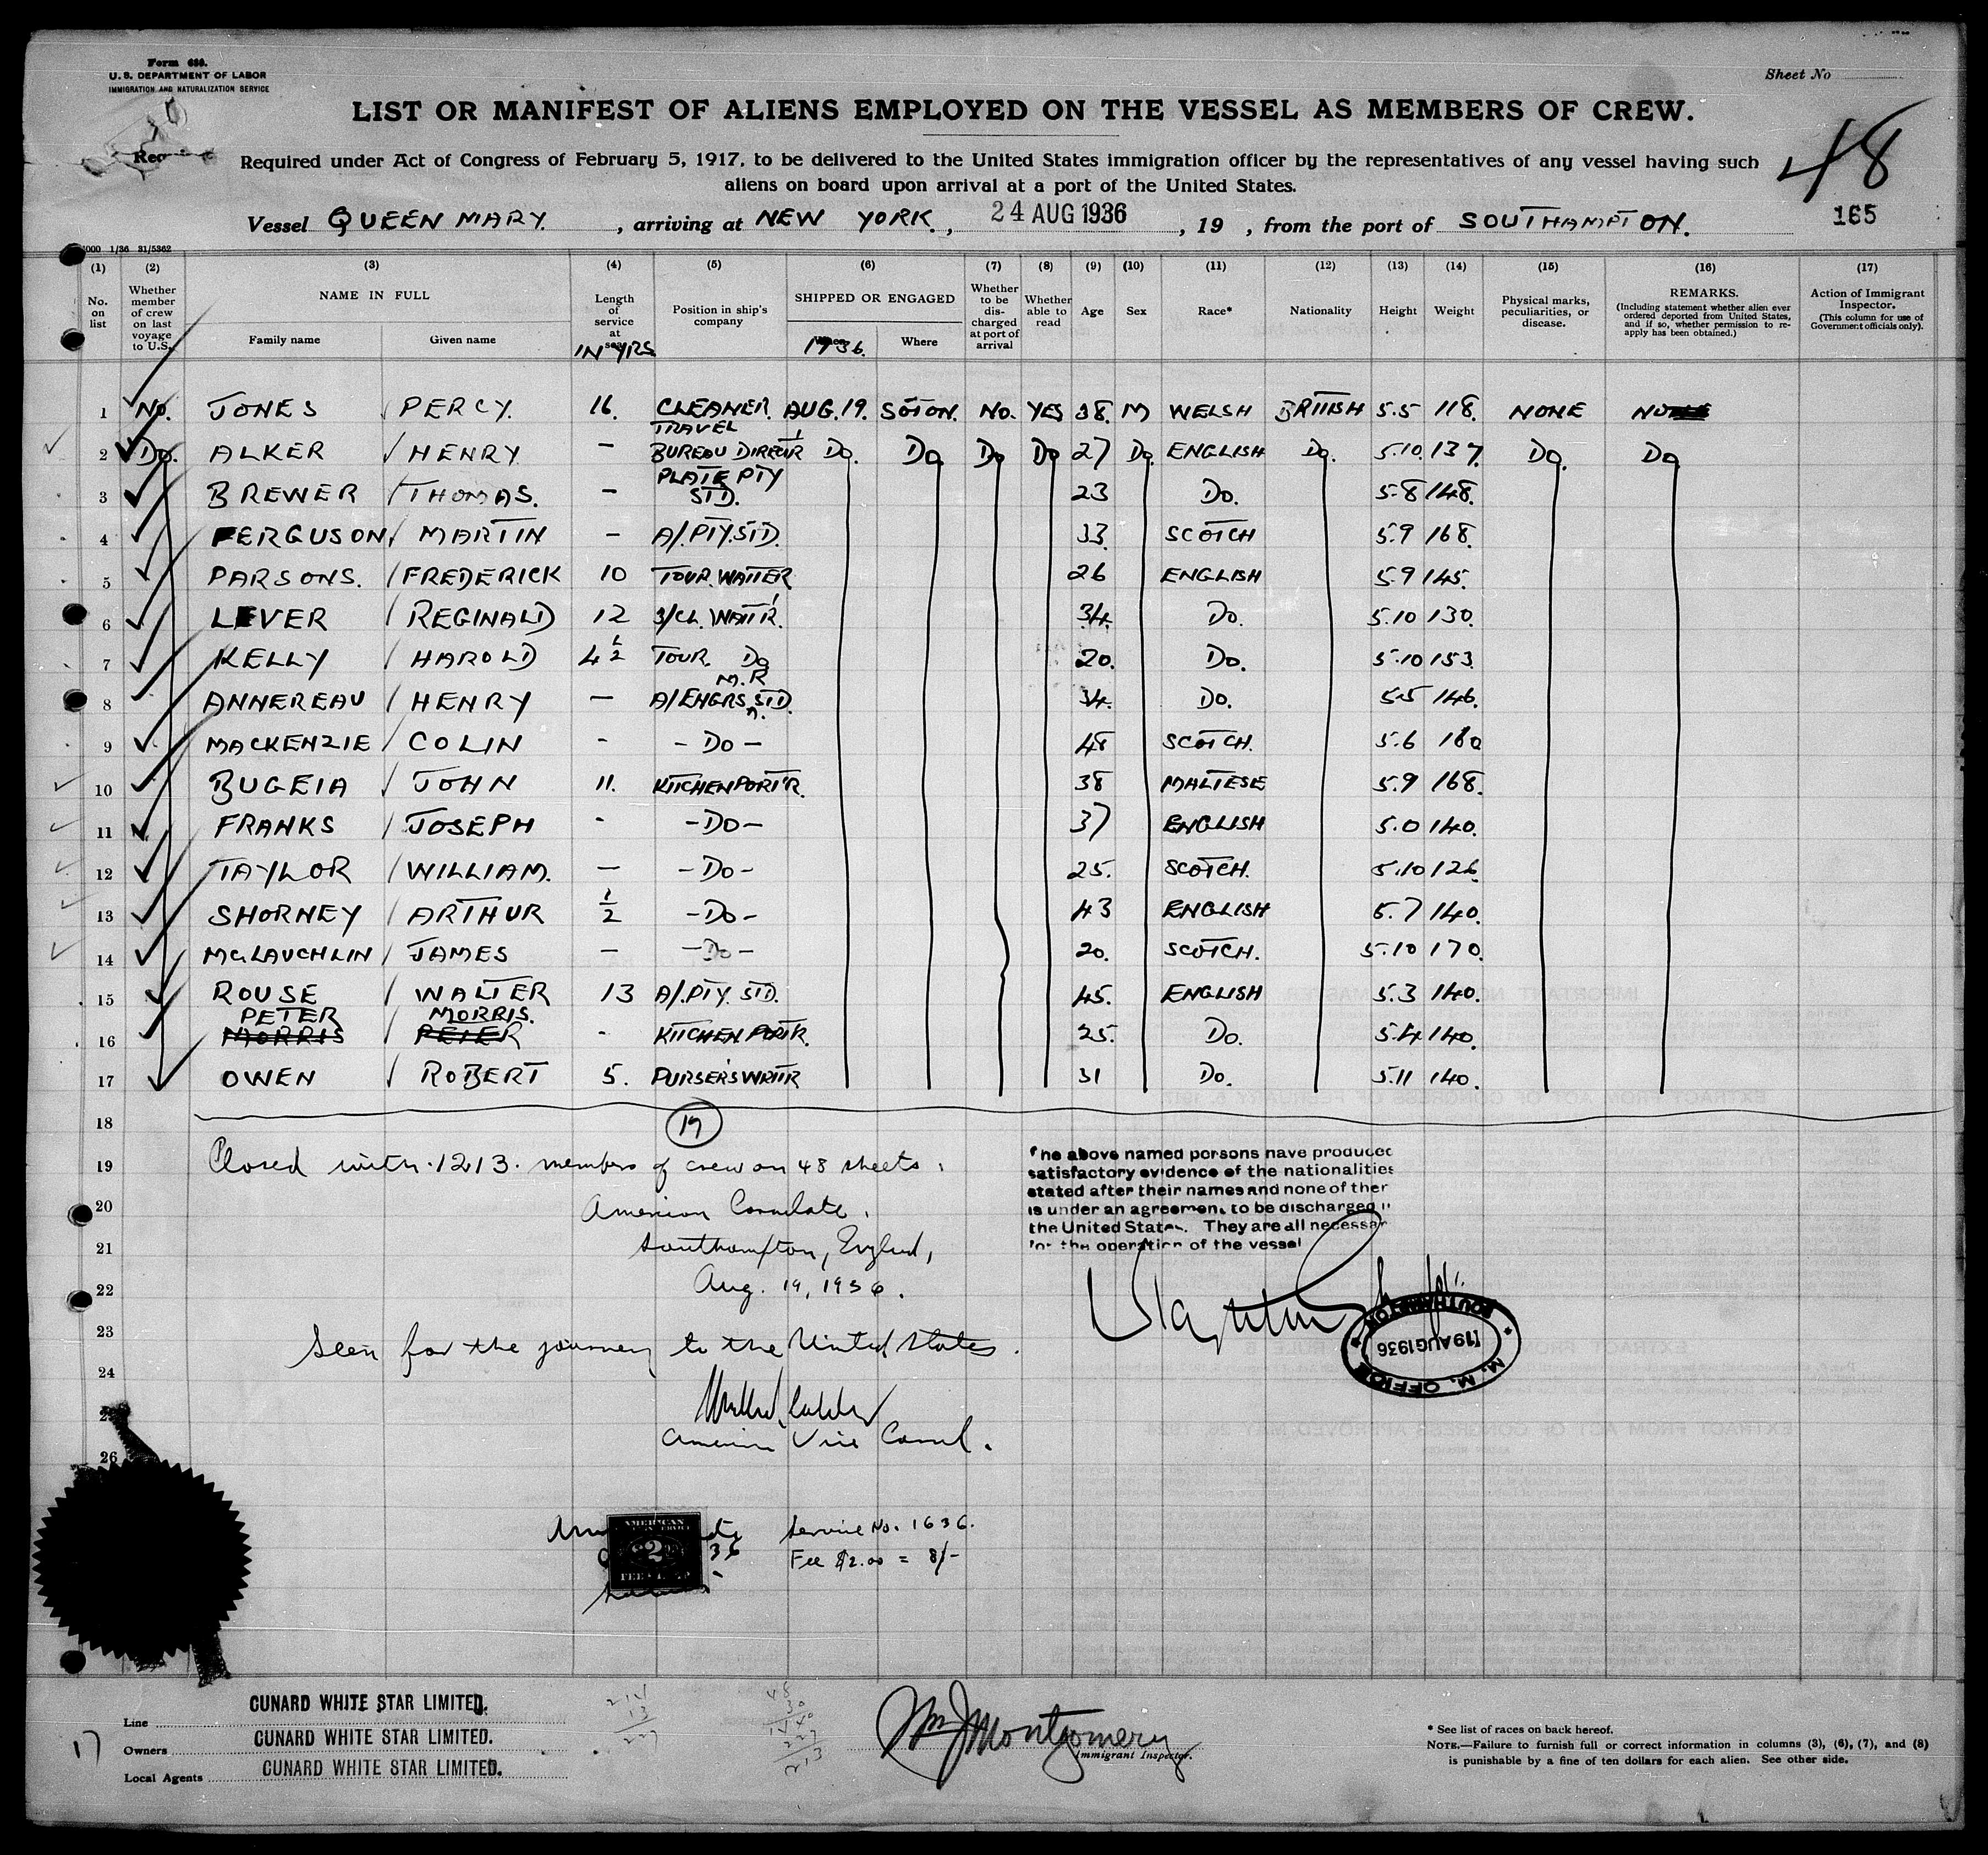 Form 680.
U. S. DEPARTMENT OF LABOR
IMMIGRATION AND NATURALIZATION SERVICE
Sheet No
LIST OR MANIFEST OF ALIENS EMPLOYED ON THE VESSEL AS MEMBERS OF CREW.
48
Required under Act of Congress of February 5, 1917, to be delivered to the United States immigration officer by the representatives of any vessel having such
aliens on board upon arrival at a port of the United States.
Vessel QUEEN MARY. , arriving at NEW YORK. , 24 AUG 1936 , 19 , from the port of SOUTHAMPTON. 165
1/36 31/5362
(1) (2) (3) (4) (5) (6) (7) (8) (9) (10) (11) (12) (13) (14) (15) (16) (17)
No. on list
Whether member of crew on last voyage to U.S.
NAME IN FULL
Family name Given name
Length of service at sea
IN YRS.
Position in ship's company
SHIPPED OR ENGAGED
When Where
1936.
Whether to be discharged at port of arrival
Whether able to read
Age Sex Race* Nationality Height Weight
Physical marks, peculiarities, or disease.
REMARKS.
(Including statement whether alien ever ordered deported from United States, and if so, whether permission to reapply has been obtained.)
Action of Immigrant Inspector.
(This column for use of Government officials only).
1 No. JONES PERCY. 16. CLEANER. AUG. 19. SOTON. No. YES 38. M WELSH BRITISH 5.5 118. NONE NO
2 Do. ALKER HENRY – TRAVEL BUREAU DIRECT'R Do. Do Do Do 27 Do. ENGLISH Do. 5.10. 137. Do. Do
3 BREWER THOMAS. – PLATE PTY STD. 23 Do. 5.8 148.
4 FERGUSON MARTIN – A/.PTY.STD. 33. SCOTCH 5.9 168.
5 PARSONS. FREDERICK 10 TOUR. WAITER 26 ENGLISH 5.9 145.
6 LEVER REGINALD 12 3/CL. WAIT'R. 34. Do. 5.10 130.
7 KELLY HAROLD 4½ TOUR. Do 20. Do. 5.10 153.
8 ANNEREAU HENRY – M.R A/ENGRS STD. 34. Do. 5.5 146.
9 MACKENZIE COLIN - – Do – 48 SCOTCH. 5.6 180
10 BUGEIA JOHN 11. KITCHEN PORT'R. 38 MALTESE 5.9 168.
11 FRANKS JOSEPH - – Do – 37 ENGLISH 5.0 140.
12 TAYLOR WILLIAM. – – Do – 25. SCOTCH. 5.10 126.
13 SHORNEY ARTHUR ½ – Do – 43 ENGLISH 5.7 140.
14 McLAUCHLIN JAMES – – Do – 20. SCOTCH. 5.10 170.
15 ROUSE WALTER 13 A/.PTY. STD. 45. ENGLISH 5.3 140.
PETER MORRIS.
16 MORRIS PETER - KITCHEN PORT'R. 25. Do. 5.4 140.
17 OWEN ROBERT 5. PURSER'S WRIT'R 31 Do. 5.11 140.
18
17
19 Closed with 1213 members of crew on 48 sheets.
20 American Consulate,
21 Southampton, England,
22 Aug. 19, 1936.
23 Seen for the journey to the United States.
24
American Vice Consul.
26
The above named persons have produced
satisfactory evidence of the nationalities
stated after their names and none of them
is under an agreement to be discharged in
the United States. They are all necessary
for the operation of the vessel
M. M. OFFICE
19 AUG 1936
SOUTHAMPTON
AMERICAN
2
FEE
36
Service No. 1636.
Fee $2.00 = 8/-
Line CUNARD WHITE STAR LIMITED.
Owners CUNARD WHITE STAR LIMITED.
Local Agents CUNARD WHITE STAR LIMITED.
17
214
13
227
48
30
1440
227
1213
Wm J Montgomery
Immigrant Inspector.
* See list of races on back hereof.
NOTE.—Failure to furnish full or correct information in columns (3), (6), (7), and (8)
is punishable by a fine of ten dollars for each alien. See other side.